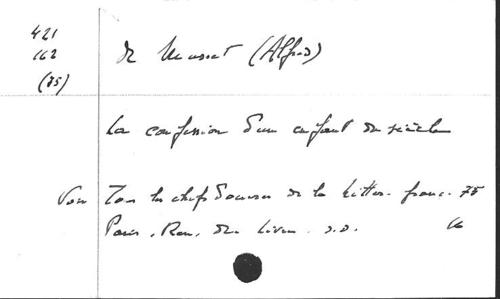 421
162
(75)
de Musset (Alfred)
La confession d'un enfant du siècle
Voir Tous les chefs d'oeuvres de la littér. franc. 75
Paris. Ren. du livre. s.d.